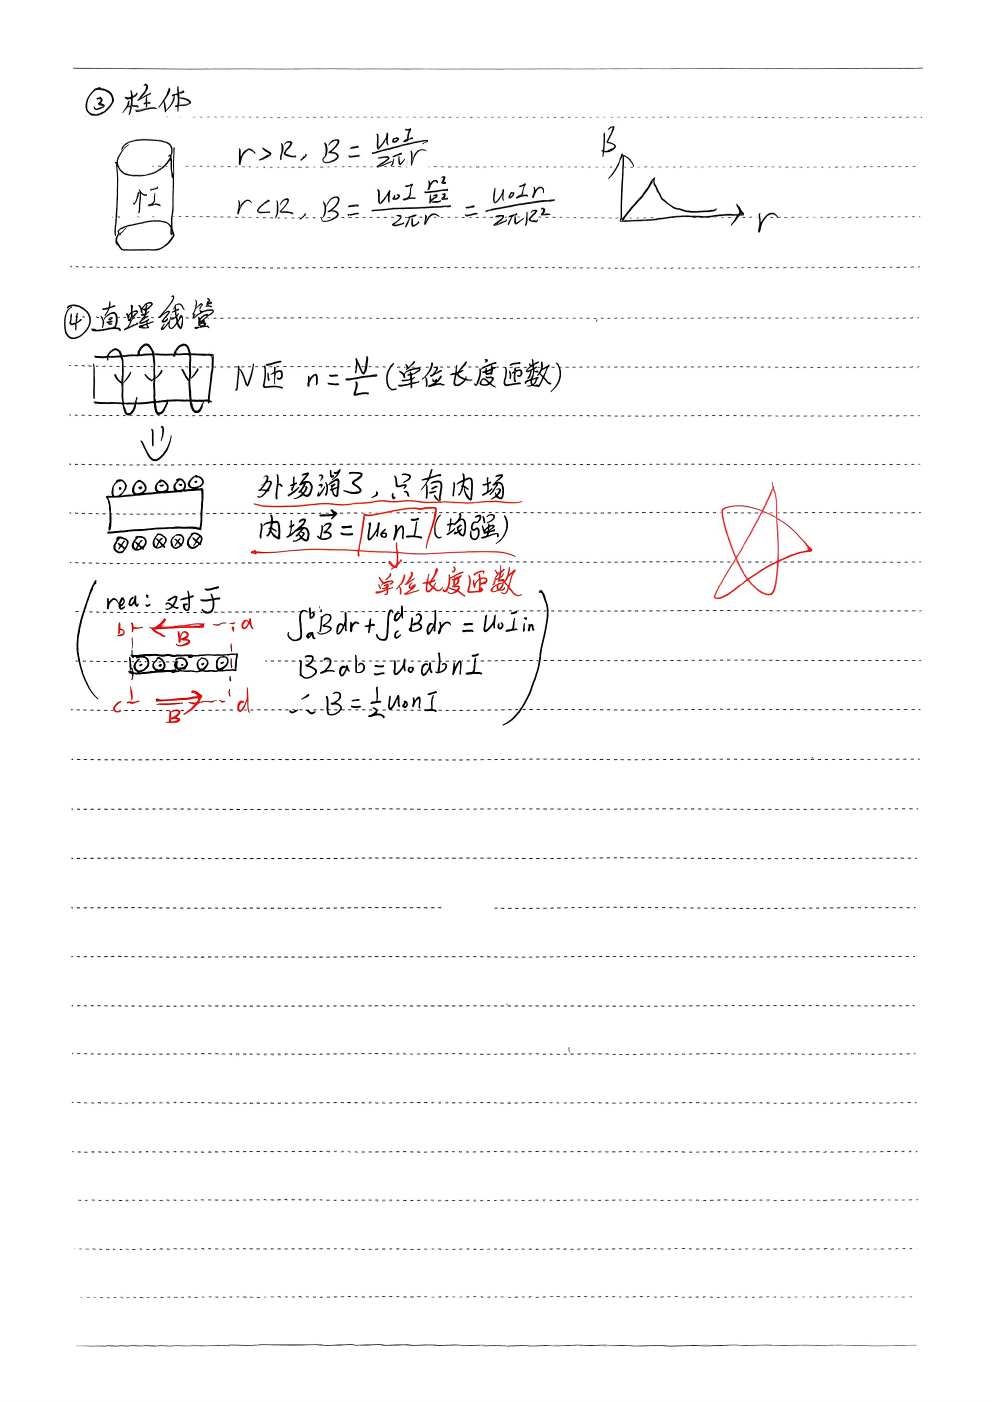 ③ 柱体
↑I
r>R, B = u₀I / 2πr
r<R, B = u₀I r²/R² / 2πr = u₀Ir / 2πR²
B
r
④ 直螺线管
N匝 n = N/L (单位长度匝数)
外场消了, 只有内场
内场 B⃗ = u₀nI (均强)
单位长度匝数
rea: 对于
b a
B
c d
B
∫ₐᵇ Bdr + ∫꜀ᵈ Bdr = u₀Iin
B2ab = u₀abnI
∴ B = ½u₀nI